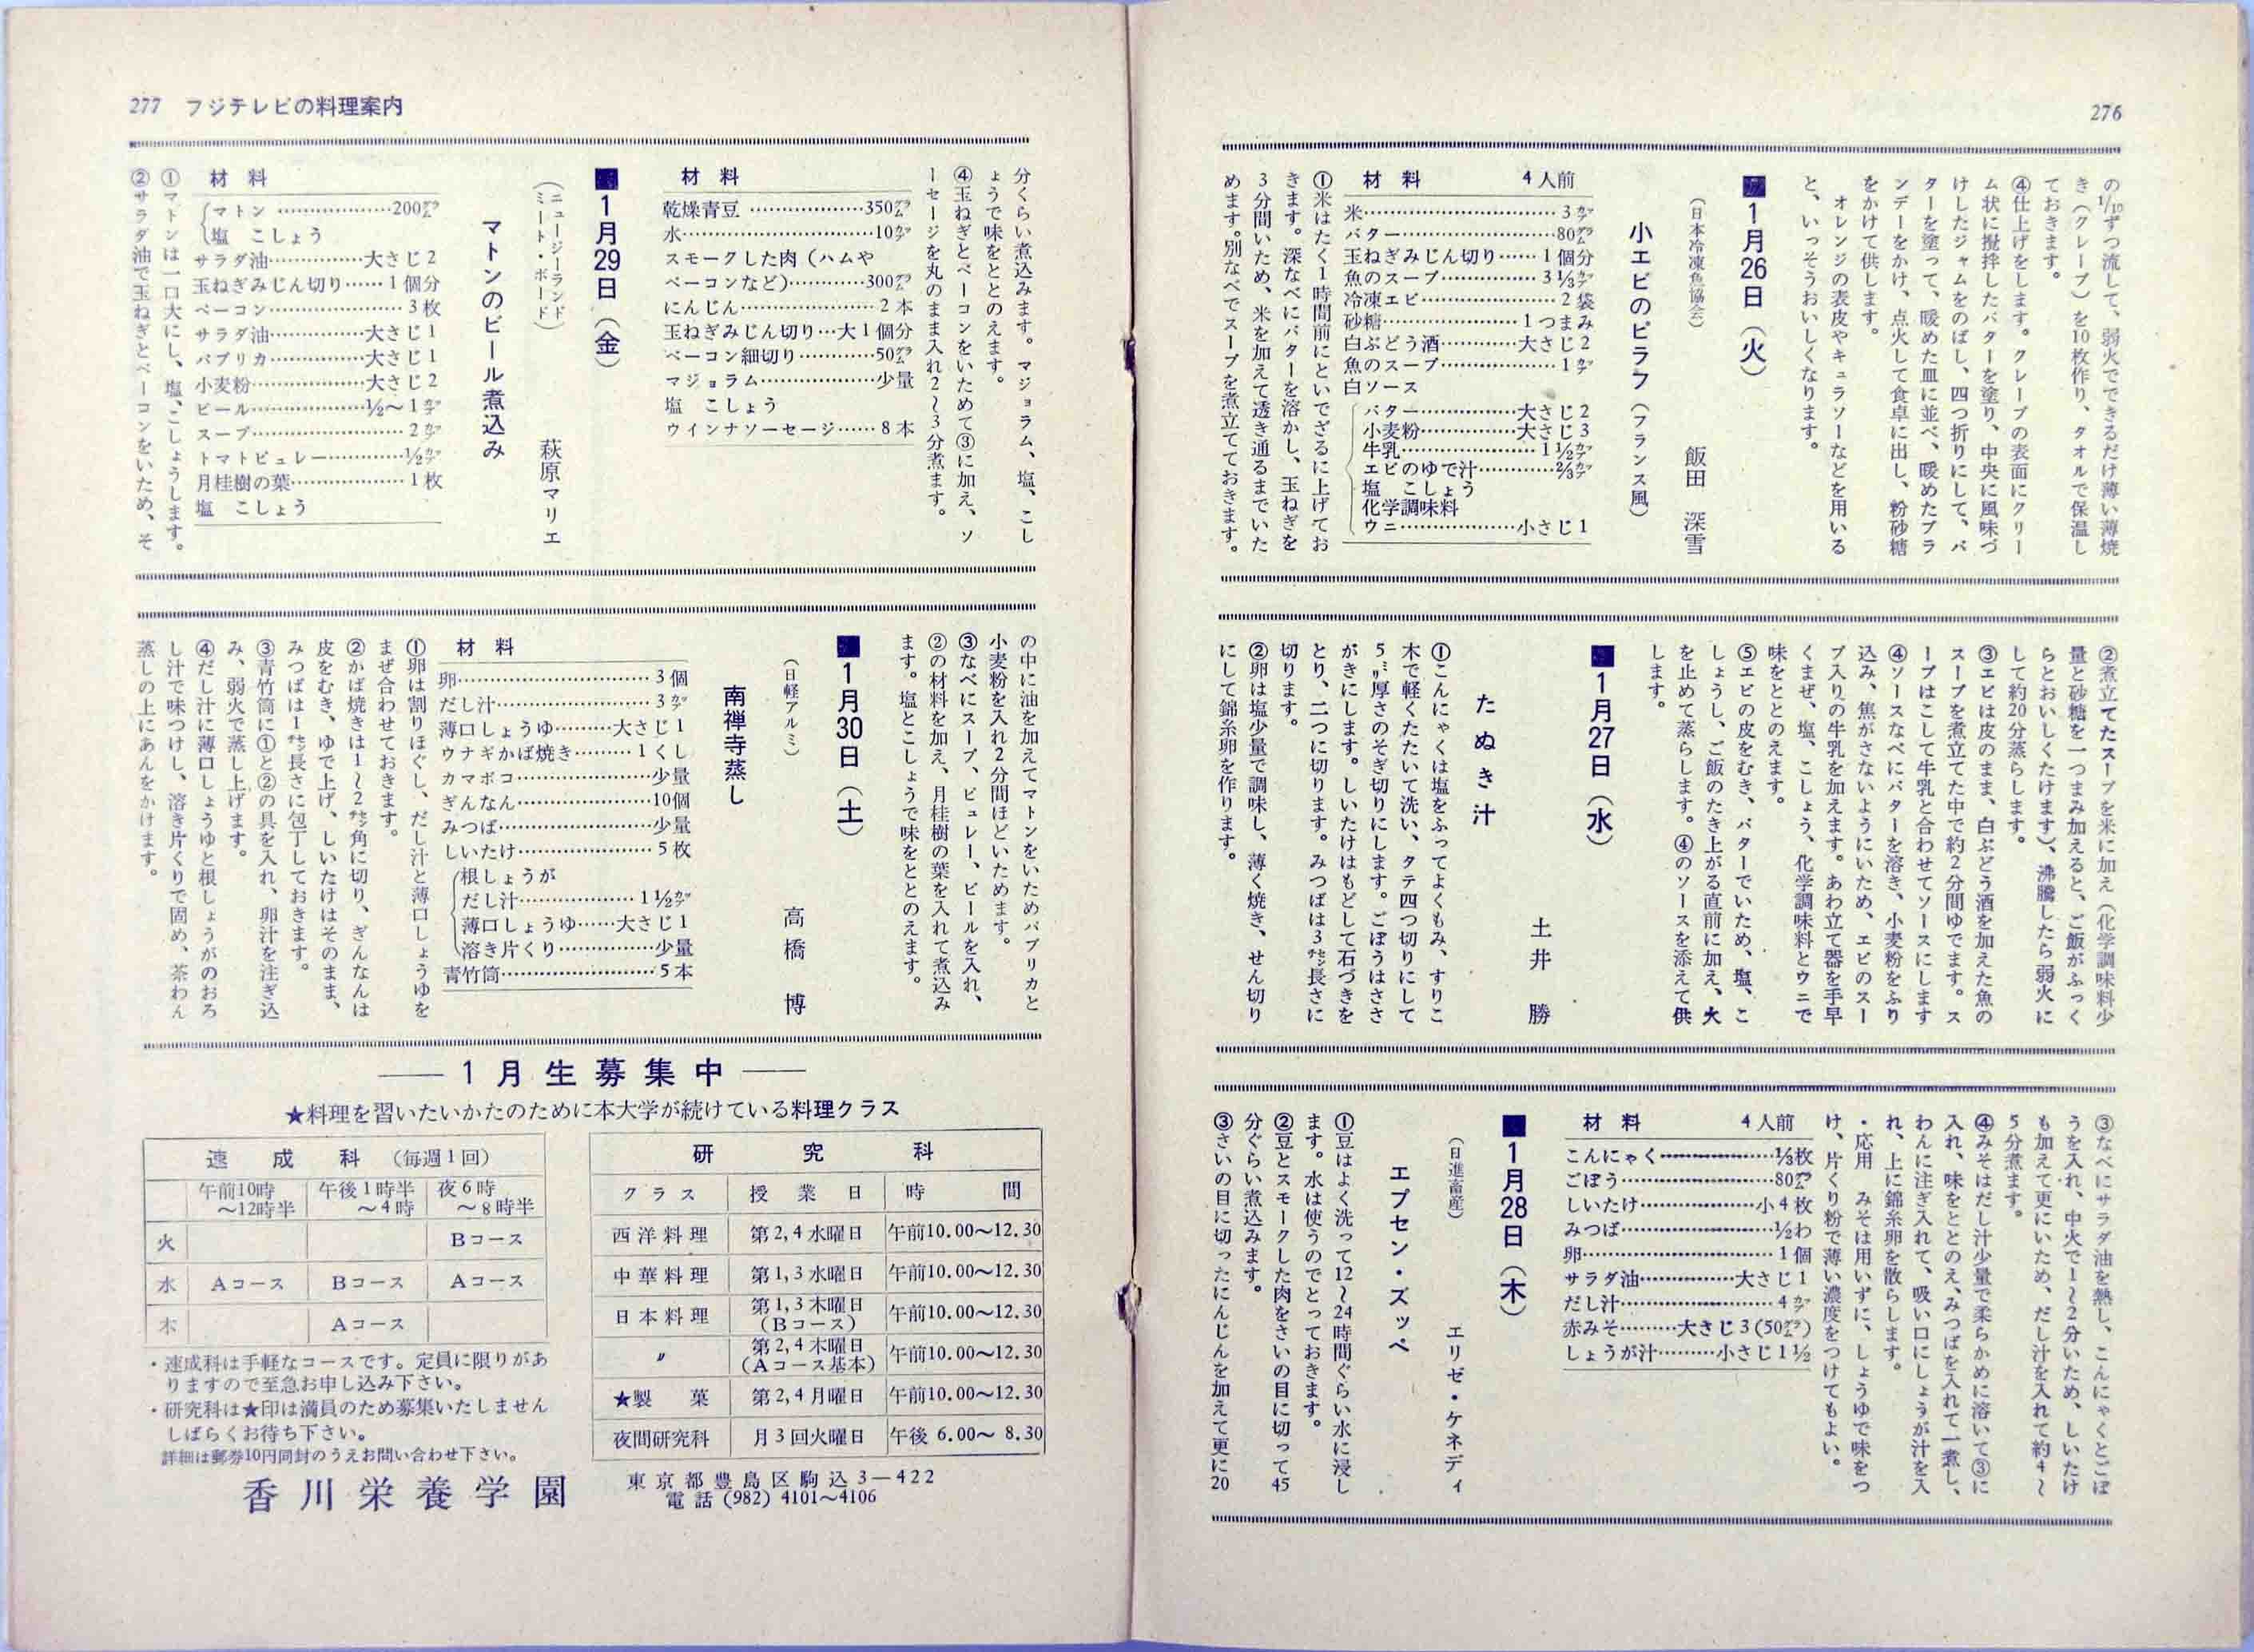 276
の1/10ずつ流して、弱火でできるだけ薄い薄焼
き（クレープ）を10枚作り、タオルで保温し
ておきます。
④仕上げをします。クレープの表面にクリー
ム状に攪拌したバターを塗り、中央に風味づ
けしたジャムをのばし、四つ折りにして、バ
ターを塗って、暖めた皿に並べ、暖めたブラ
ンデーをかけ、点火して食卓に出し、粉砂糖
をかけて供します。
オレンジの表皮やキュラソーなどを用いる
と、いっそうおいしくなります。
■1月26日（火）
（日本冷凍魚協会）
飯田　深雪
小エビのピラフ（フランス風）
材　料　4人前
米……3カップ
バター……80グラム
玉ねぎみじん切り……1個分
魚のスープ……3⅓カップ
冷凍エビ……2袋
砂糖……1つまみ
白ぶどう酒……大さじ2
魚のスープ……1カップ
白ソース
バター……大さじ2
小麦粉……大さじ3
牛乳……1½カップ
エビのゆで汁……⅔カップ
塩　こしょう
化学調味料
ウニ……小さじ1
①米はたく1時間前にといでざるに上げてお
きます。深なべにバターを溶かし、玉ねぎを
3分間いため、米を加えて透き通るまでいた
めます。別なべでスープを煮立てておきます。
②煮立てたスープを米に加え（化学調味料少
量と砂糖を一つまみ加えると、ご飯がふっく
らとおいしくたけます）、沸騰したら弱火に
して約20分蒸らします。
③エビは皮のまま、白ぶどう酒を加えた魚の
スープを煮立てた中で約2分間ゆでます。ス
ープはこして牛乳と合わせてソースにします
④ソースなべにバターを溶き、小麦粉をふり
込み、焦がさないようにいため、エビのスー
プ入りの牛乳を加えます。あわ立て器を手早
くまぜ、塩、こしょう、化学調味料とウニで
味をととのえます。
⑤エビの皮をむき、バターでいため、塩、こ
しょうし、ご飯のたき上がる直前に加え、火
を止めて蒸らします。④のソースを添えて供
します。
■1月27日（水）
土井　勝
たぬき汁
①こんにゃくは塩をふってよくもみ、すりこ
木で軽くたたいて洗い、タテ四つ切りにして
5ミリ厚さのそぎ切りにします。ごぼうはささ
がきにします。しいたけはもどして石づきを
とり、二つに切ります。みつばは3センチ長さに
切ります。
②卵は塩少量で調味し、薄く焼き、せん切り
にして錦糸卵を作ります。
③なべにサラダ油を熱し、こんにゃくとごぼ
うを入れ、中火で1～2分いため、しいたけ
も加えて更にいため、だし汁を入れて約4～
5分煮ます。
④みそはだし汁少量で柔らかめに溶いて③に
入れ、味をととのえ、みつばを入れて一煮し、
わんに注ぎ入れて、吸い口にしょうが汁を入
れ、上に錦糸卵を散らします。
・応用　みそは用いずに、しょうゆで味をつ
け、片くり粉で薄い濃度をつけてもよい。
材　料　4人前
こんにゃく……⅓枚
ごぼう……80グラム
しいたけ……小4枚
みつば……½わ
卵……1個
サラダ油……大さじ1
だし汁……4カップ
赤みそ……大さじ3(50グラム)
しょうが汁……小さじ1½
■1月28日（木）
（日進畜産）
エリゼ・ケネディ
エプセン・ズッペ
①豆はよく洗って12～24時間ぐらい水に浸し
ます。水は使うのでとっておきます。
②豆とスモークした肉をさいの目に切って45
分ぐらい煮込みます。
③さいの目に切ったにんじんを加えて更に20
277　フジテレビの料理案内
分くらい煮込みます。マジョラム、塩、こし
ょうで味をととのえます。
④玉ねぎとベーコンをいためて③に加え、ソ
ーセージを丸のまま入れ2～3分煮ます。
材　料
乾燥青豆……350グラム
水……10カップ
スモークした肉（ハムや
ベーコンなど）……300グラム
にんじん……2本
玉ねぎみじん切り…大1個分
ベーコン細切り……50グラム
マジョラム……少量
塩　こしょう
ウインナソーセージ……8本
■1月29日（金）
（ニュージーランド
ミート・ボード）
萩原マリエ
マトンのビール煮込み
材　料
マトン……200グラム
塩　こしょう
サラダ油……大さじ2
玉ねぎみじん切り……1個分
ベーコン……3枚
サラダ油……大さじ1
パプリカ……大さじ1
小麦粉……大さじ2
ビール……½～1カップ
スープ……2カップ
トマトピュレー……½カップ
月桂樹の葉……1枚
塩　こしょう
①マトンは一口大にし、塩、こしょうします。
②サラダ油で玉ねぎとベーコンをいため、そ
の中に油を加えてマトンをいためパプリカと
小麦粉を入れ2分間ほどいためます。
③なべにスープ、ピュレー、ビールを入れ、
②の材料を加え、月桂樹の葉を入れて煮込み
ます。塩とこしょうで味をととのえます。
■1月30日（土）
（日軽アルミ）
高橋　博
南禅寺蒸し
材　料
卵……3個
だし汁……3カップ
薄口しょうゆ……大さじ1
ウナギかば焼き……1くし
カマボコ……少量
ぎんなん……10個
みつば……少量
しいたけ……5枚
根しょうが
だし汁……1½カップ
薄口しょうゆ……大さじ1
溶き片くり……少量
青竹筒……5本
①卵は割りほぐし、だし汁と薄口しょうゆを
まぜ合わせておきます。
②かば焼きは1～2センチ角に切り、ぎんなんは
皮をむき、ゆで上げ、しいたけはそのまま、
みつばは1センチ長さに包丁しておきます。
③青竹筒に①と②の具を入れ、卵汁を注ぎ込
み、弱火で蒸し上げます。
④だし汁に薄口しょうゆと根しょうがのおろ
し汁で味つけし、溶き片くりで固め、茶わん
蒸しの上にあんをかけます。
―― 1月生募集中 ――
★料理を習いたいかたのために本大学が続けている料理クラス
速　成　科　（毎週1回）
午前10時～12時半　午後1時半～4時　夜6時～8時半
火　Bコース
水　Aコース　Bコース　Aコース
木　Aコース
・速成科は手軽なコースです。定員に限りがあ
りますので至急お申し込み下さい。
・研究科は★印は満員のため募集いたしません
しばらくお待ち下さい。
詳細は郵券10円同封のうえお問い合わせ下さい。
研　究　科
クラス　授業日　時間
西洋料理　第2,4水曜日　午前10.00～12.30
中華料理　第1,3水曜日　午前10.00～12.30
日本料理　第1,3木曜日（Bコース）　午前10.00～12.30
〃　第2,4木曜日（Aコース基本）　午前10.00～12.30
★製　菓　第2,4月曜日　午前10.00～12.30
夜間研究科　月3回火曜日　午後 6.00～ 8.30
香川栄養学園
東京都豊島区駒込3―422
電話 (982) 4101～4106